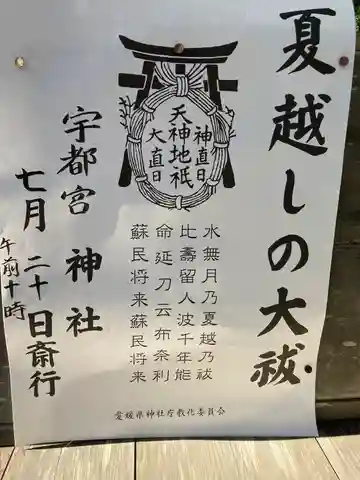 夏越しの大祓
神直日
天神地祇
大直日
水無月乃夏越乃祓
比壽留人波千年能
命延刀云布奈利
蘇民将来蘇民将来
愛媛県神社庁教化委員会
宇都宮神社
七月二十日斎行
午前十時